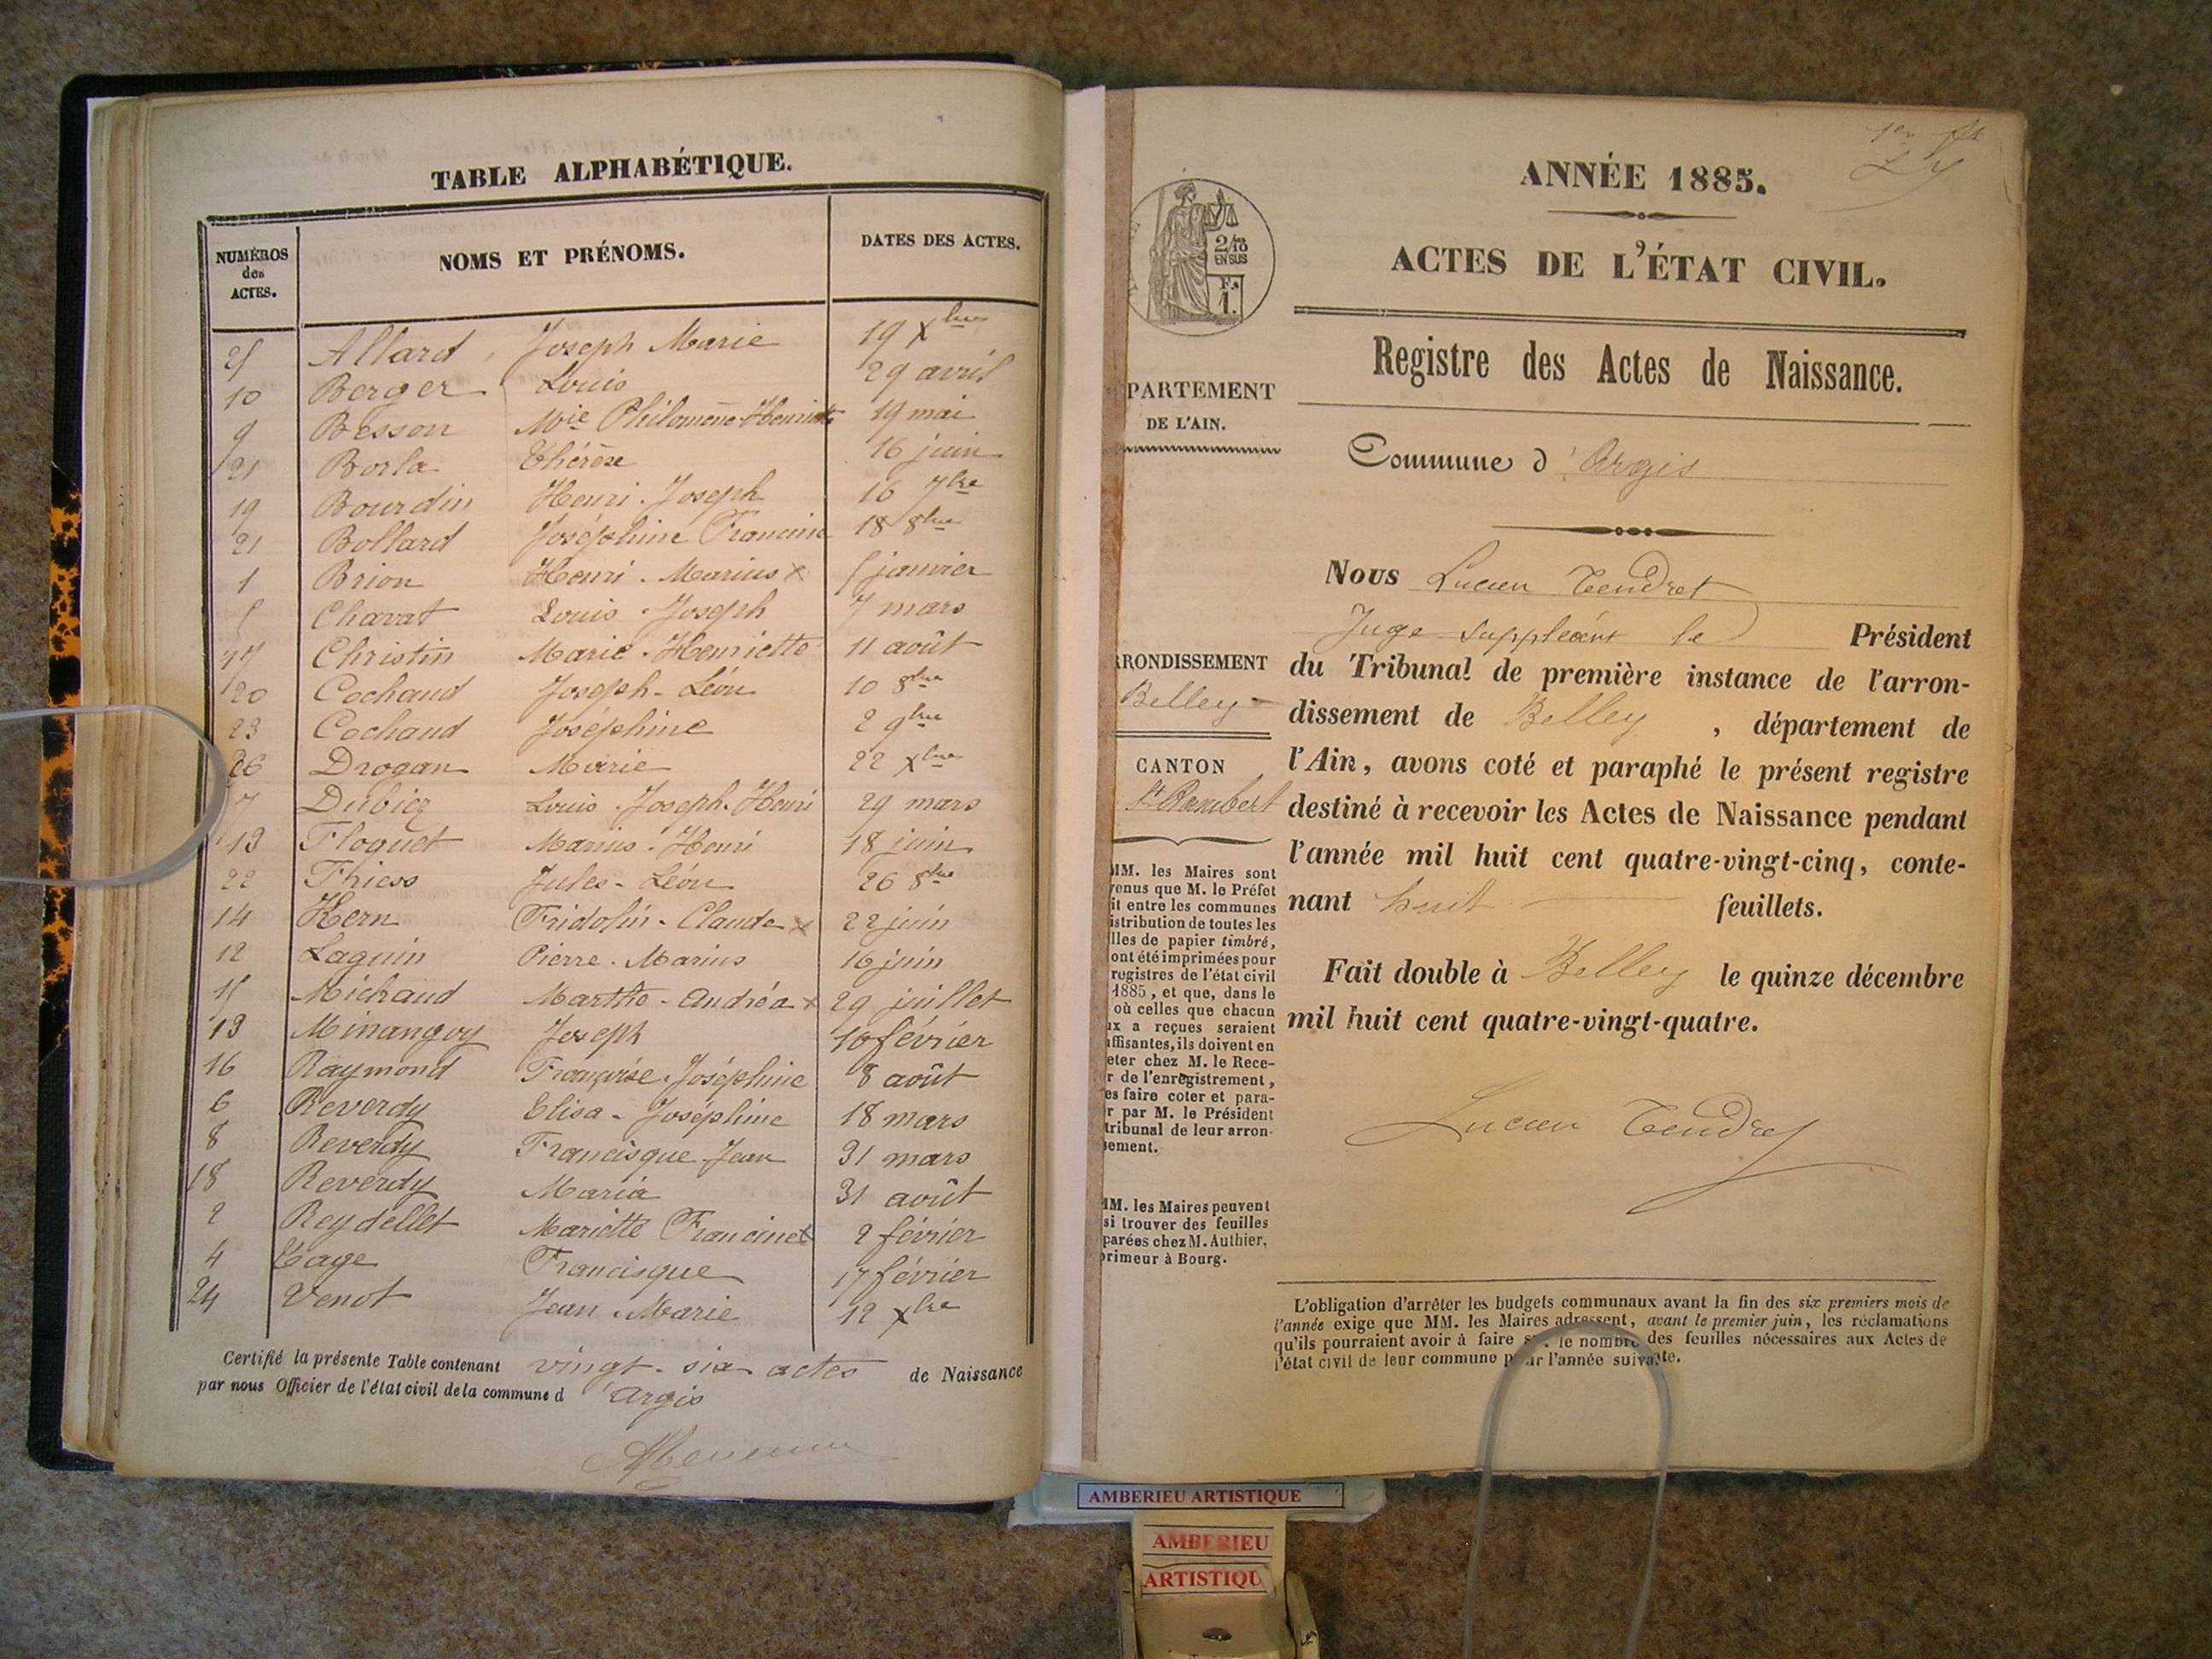 TABLE ALPHABÉTIQUE.
NUMÉROS des ACTES. NOMS ET PRÉNOMS. DATES DES ACTES.
25 Allard Joseph Marie 19 Xbre
10 Berger Louis 29 avril
9 Besson Mie Philomène Henriette 19 mai
21 Borla Thérèse 16 juin
19 Bourdin Henri Joseph 16 7bre
21 Bollard Joséphine Francine 18 8bre
1 Brion Henri Marius x 5 janvier
5 Chavat Louis Joseph 7 mars
17 Christin Marie Henriette 11 août
20 Cochaud Joseph-Léon 10 8bre
23 Cochaud Joséphine 2 9bre
26 Drogan Marie 22 Xbre
7 Dubiez Louis Joseph Henri 29 mars
13 Floquet Marius Henri 18 juin
22 Friess Jules-Léon 26 8bre
14 Kern Fridolin-Claude x 22 juin
12 Laguin Pierre Marius 16 juin
15 Michaud Marthe-Andréa x 29 juillet
13 Minangoy Joseph 10 février
16 Raymond Françoise Joséphine 8 août
6 Reverdy Elisa-Joséphine 18 mars
8 Reverdy Francisque Jean 31 mars
18 Reverdy Maria 31 août
2 Reydellet Mariette Francine x 2 février
4 Tage Francisque 17 février
24 Venot Jean Marie 12 Xbre
Certifié la présente Table contenant vingt-six actes de Naissance
par nous Officier de l'état civil de la commune d'Argis
1er
ANNÉE 1885.
ACTES DE L'ÉTAT CIVIL.
2/10
EN SUS
F.
1.
Registre des Actes de Naissance.
PARTEMENT
DE L'AIN.
Commune d'Argis
Nous Lucien Tendret
Juge suppléant le Président
du Tribunal de première instance de l'arron-
dissement de Belley, département de
l'Ain, avons coté et paraphé le présent registre
destiné à recevoir les Actes de Naissance pendant
l'année mil huit cent quatre-vingt-cinq, conte-
nant huit feuillets.
Fait double à Belley le quinze décembre
mil huit cent quatre-vingt-quatre.
Lucien Tendret
RRONDISSEMENT
Belley
CANTON
St Rambert
MM. les Maires sont
venus que M. le Préfet
it entre les communes
istribution de toutes les
lles de papier timbré,
ont été imprimées pour
registres de l'état civil
1885, et que, dans le
où celles que chacun
ux a reçues seraient
uffisantes, ils doivent en
eter chez M. le Rece-
r de l'enregistrement,
es faire coter et para-
r par M. le Président
tribunal de leur arron-
sement.
MM. les Maires peuvent
si trouver des feuilles
parées chez M. Authier,
primeur à Bourg.
L'obligation d'arrêter les budgets communaux avant la fin des six premiers mois de
l'année exige que MM. les Maires adressent, avant le premier juin, les réclamations
qu'ils pourraient avoir à faire sur le nombre des feuilles nécessaires aux Actes de
l'état civil de leur commune pour l'année suivante.
AMBERIEU ARTISTIQUE
AMBERIEU
ARTISTIQU